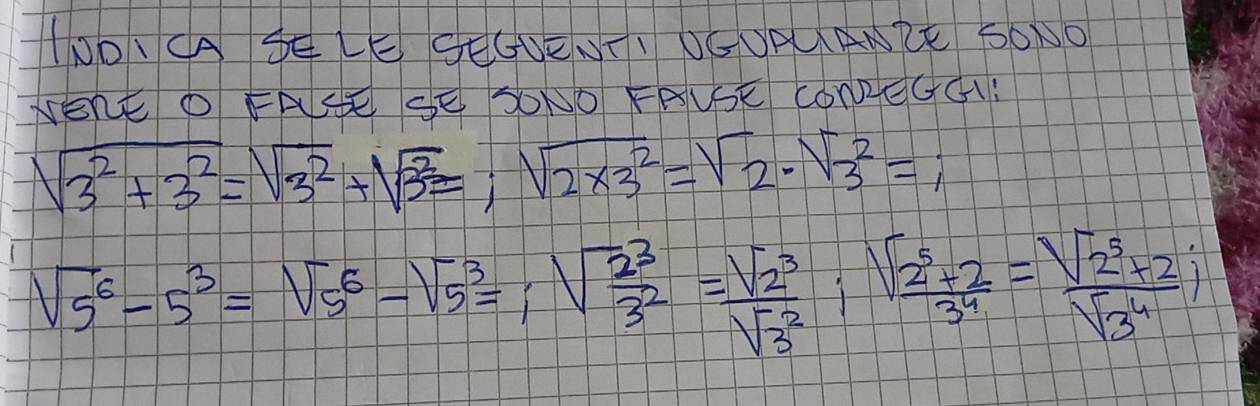 INDICA SE LE SEGUENTI UGUALIANZE SONO
VERE O FALSE SE SONO FALSE CORREGGI:
√(3² + 3²) = √3² + √3² = ; √(2×3²) = √2 · √3² = ;
√5⁶ - 5³ = √5⁶ - √5³ = ; √(2³/3²) = √2³/√3² ; √((2⁵+2)/3⁴) = √(2⁵+2)/√3⁴ ;